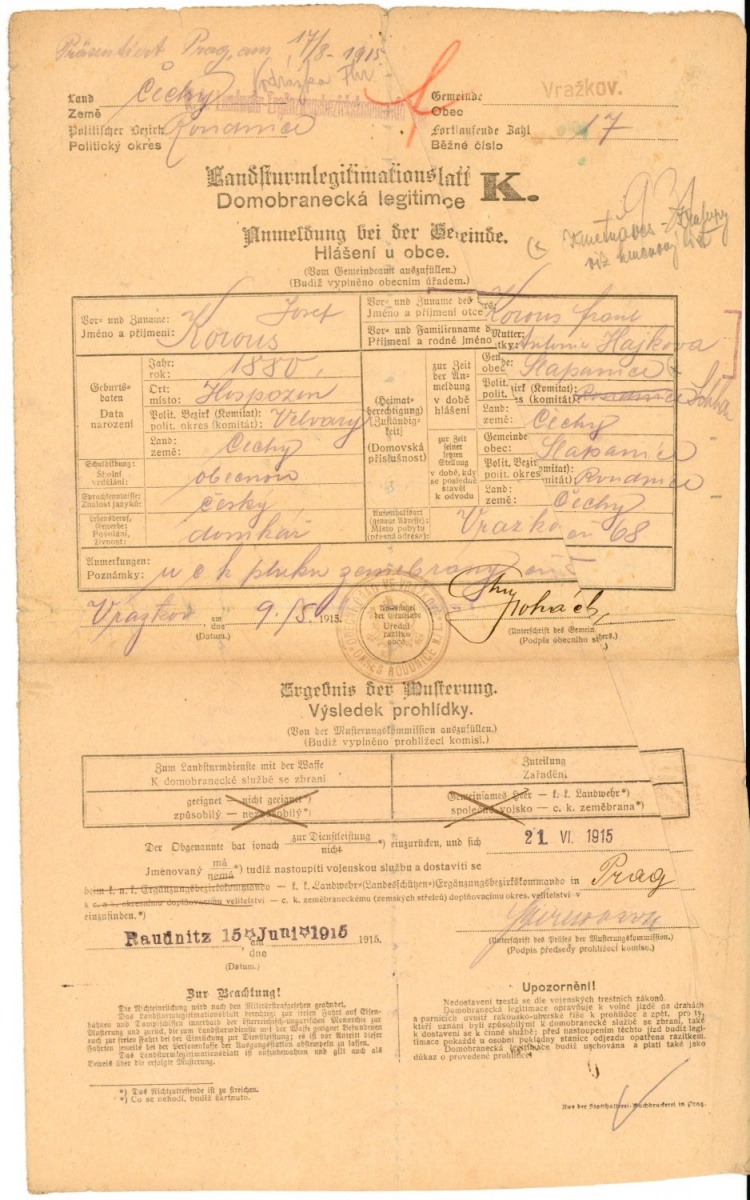 Präsentiert Prag, am 17/8 1915
Land
Země
Čechy
Gemeinde
Obec
Vražkov.
Politischer Bezirk
Politický okres
Roudnice
Fortlaufende Zahl
Běžné číslo
17
Landsturmlegitimationsblatt K.
Domobranecká legitimace
Anmeldung bei der Gemeinde.
Hlášení u obce.
(Vom Gemeindeamt auszufüllen.)
(Budiž vyplněno obecním úřadem.)
Vor- und Zuname:
Jméno a příjmení:
Josef
Korous
Vor- und Zuname des
Jméno a příjmení otce
Korous Frant
Vor- und Familienname d Mutter:
Příjmení a rodné jméno tky:
Antonie Hajkova
Geburtsdaten
Data narození
Jahr:
rok:
1880
Ort:
místo:
Hospozin
Polit. Bezirk (Komitat):
polit. okres (komitát):
Velvary
Land:
země:
Čechy
Schulbildung:
Školní vzdělání:
obecnou
Sprachkenntnisse:
Znalost jazyků:
český
Lebensberuf, Gewerbe:
Povolání, živnost:
domkář
(Heimatberechtigung)
(Zuständigkeit)
(Domovská příslušnost)
zur Zeit der Anmeldung
v době hlášení
Gem
obec
Slapanice
Polit. Bezirk (Komitat):
polit. okres (komitát):
Roudnice
Land:
země:
Čechy
zur Zeit seiner letzten Stellung
v době, kdy se posledně stavěl k odvodu
Gemeinde
obec:
Slapanice
Polit. Bezirk (Komitat):
polit. okres (komitát)
Roudnice
Land:
země:
Čechy
Aufenthaltsort (genaue Adresse):
Místo pobytu (přesná adresa):
Vrazko čís 68
Anmerkungen:
Poznámky:
u c k pluku zemebrany
Vražkov am
dne 9./5. 1915.
(Datum.)
Amtssiegel der Gemeinde
Úřední razítko obce
(Unterschrift des Gemein
(Podpis obecního
Ergebnis der Musterung.
Výsledek prohlídky.
(Von der Musterungskommission auszufüllen.)
(Budiž vyplněno prohlížecí komisí.)
Zum Landsturmdienste mit der Waffe
K domobranecké službě se zbraní
Zuteilung
Zařadění
geeignet — nicht geeignet*)
způsobilý — nezpůsobilý*)
Gemeinsames Heer — k. k. Landwehr*)
společné vojsko — c. k. zeměbrana*)
Der Obgenannte hat sonach zur Dienstleistung
nicht *) einzurücken, und sich 21 VI. 1915
Jmenovaný má
nemá *) tudíž nastoupiti vojenskou službu a dostaviti se
beim k. u. k. Ergänzungsbezirkskommando — k. k. Landwehr=(Landesschützen=)Ergänzungsbezirkskommando in Prag
k c. a k. okresnímu doplňovacímu velitelství — c. k. zeměbraneckému (zemských střelců) doplňovacímu okres. velitelství v
einzufinden.*)
Raudnitz 15. Juni 1915 am
dne 1915.
(Datum.)
(Unterschrift des Präses der Musterungskommission.)
(Podpis předsedy prohlížecí komise.)
Zur Beachtung!
Die Nichteinrückung wird nach den Militärstrafgesetzen geahndet.
Das Landsturmlegitimationsblatt berechtigt zur freien Fahrt auf Eisenbahnen und Dampfschiffen innerhalb der österreichisch-ungarischen Monarchie zur
Musterung und zurück, die zum Landsturmdienste mit der Waffe geeignet Befundenen
auch zur freien Fahrt bei der Einrückung zur Dienstleistung; es ist vor Antritt dieser
Fahrten jeweils bei der Personenkasse der Ausgangsstation abstempeln zu lassen.
Das Landsturmlegitimationsblatt ist aufzubewahren und gilt auch als
Beweis über die erfolgte Musterung.
*) Das Nichtzutreffende ist zu streichen.
*) Co se nehodí, budiž škrtnuto.
Upozornění!
Nedostavení trestá se dle vojenských trestních zákonů.
Domobranecká legitimace opravňuje k volné jízdě na drahách
a parnících uvnitř rakousko-uherské říše k prohlídce a zpět, pro ty,
kteří uznáni byli způsobilými k domobranecké službě se zbraní, také
k dostavení se k činné službě; před nastoupením těchto jízd budiž legitimace pokaždé u osobní pokladny stanice odjezdu opatřena razítkem.
Domobranecká legitimace budiž uschována a platí také jako
důkaz o provedené prohlídce.
Aus der Statthalterei-Buchdruckerei in Prag.